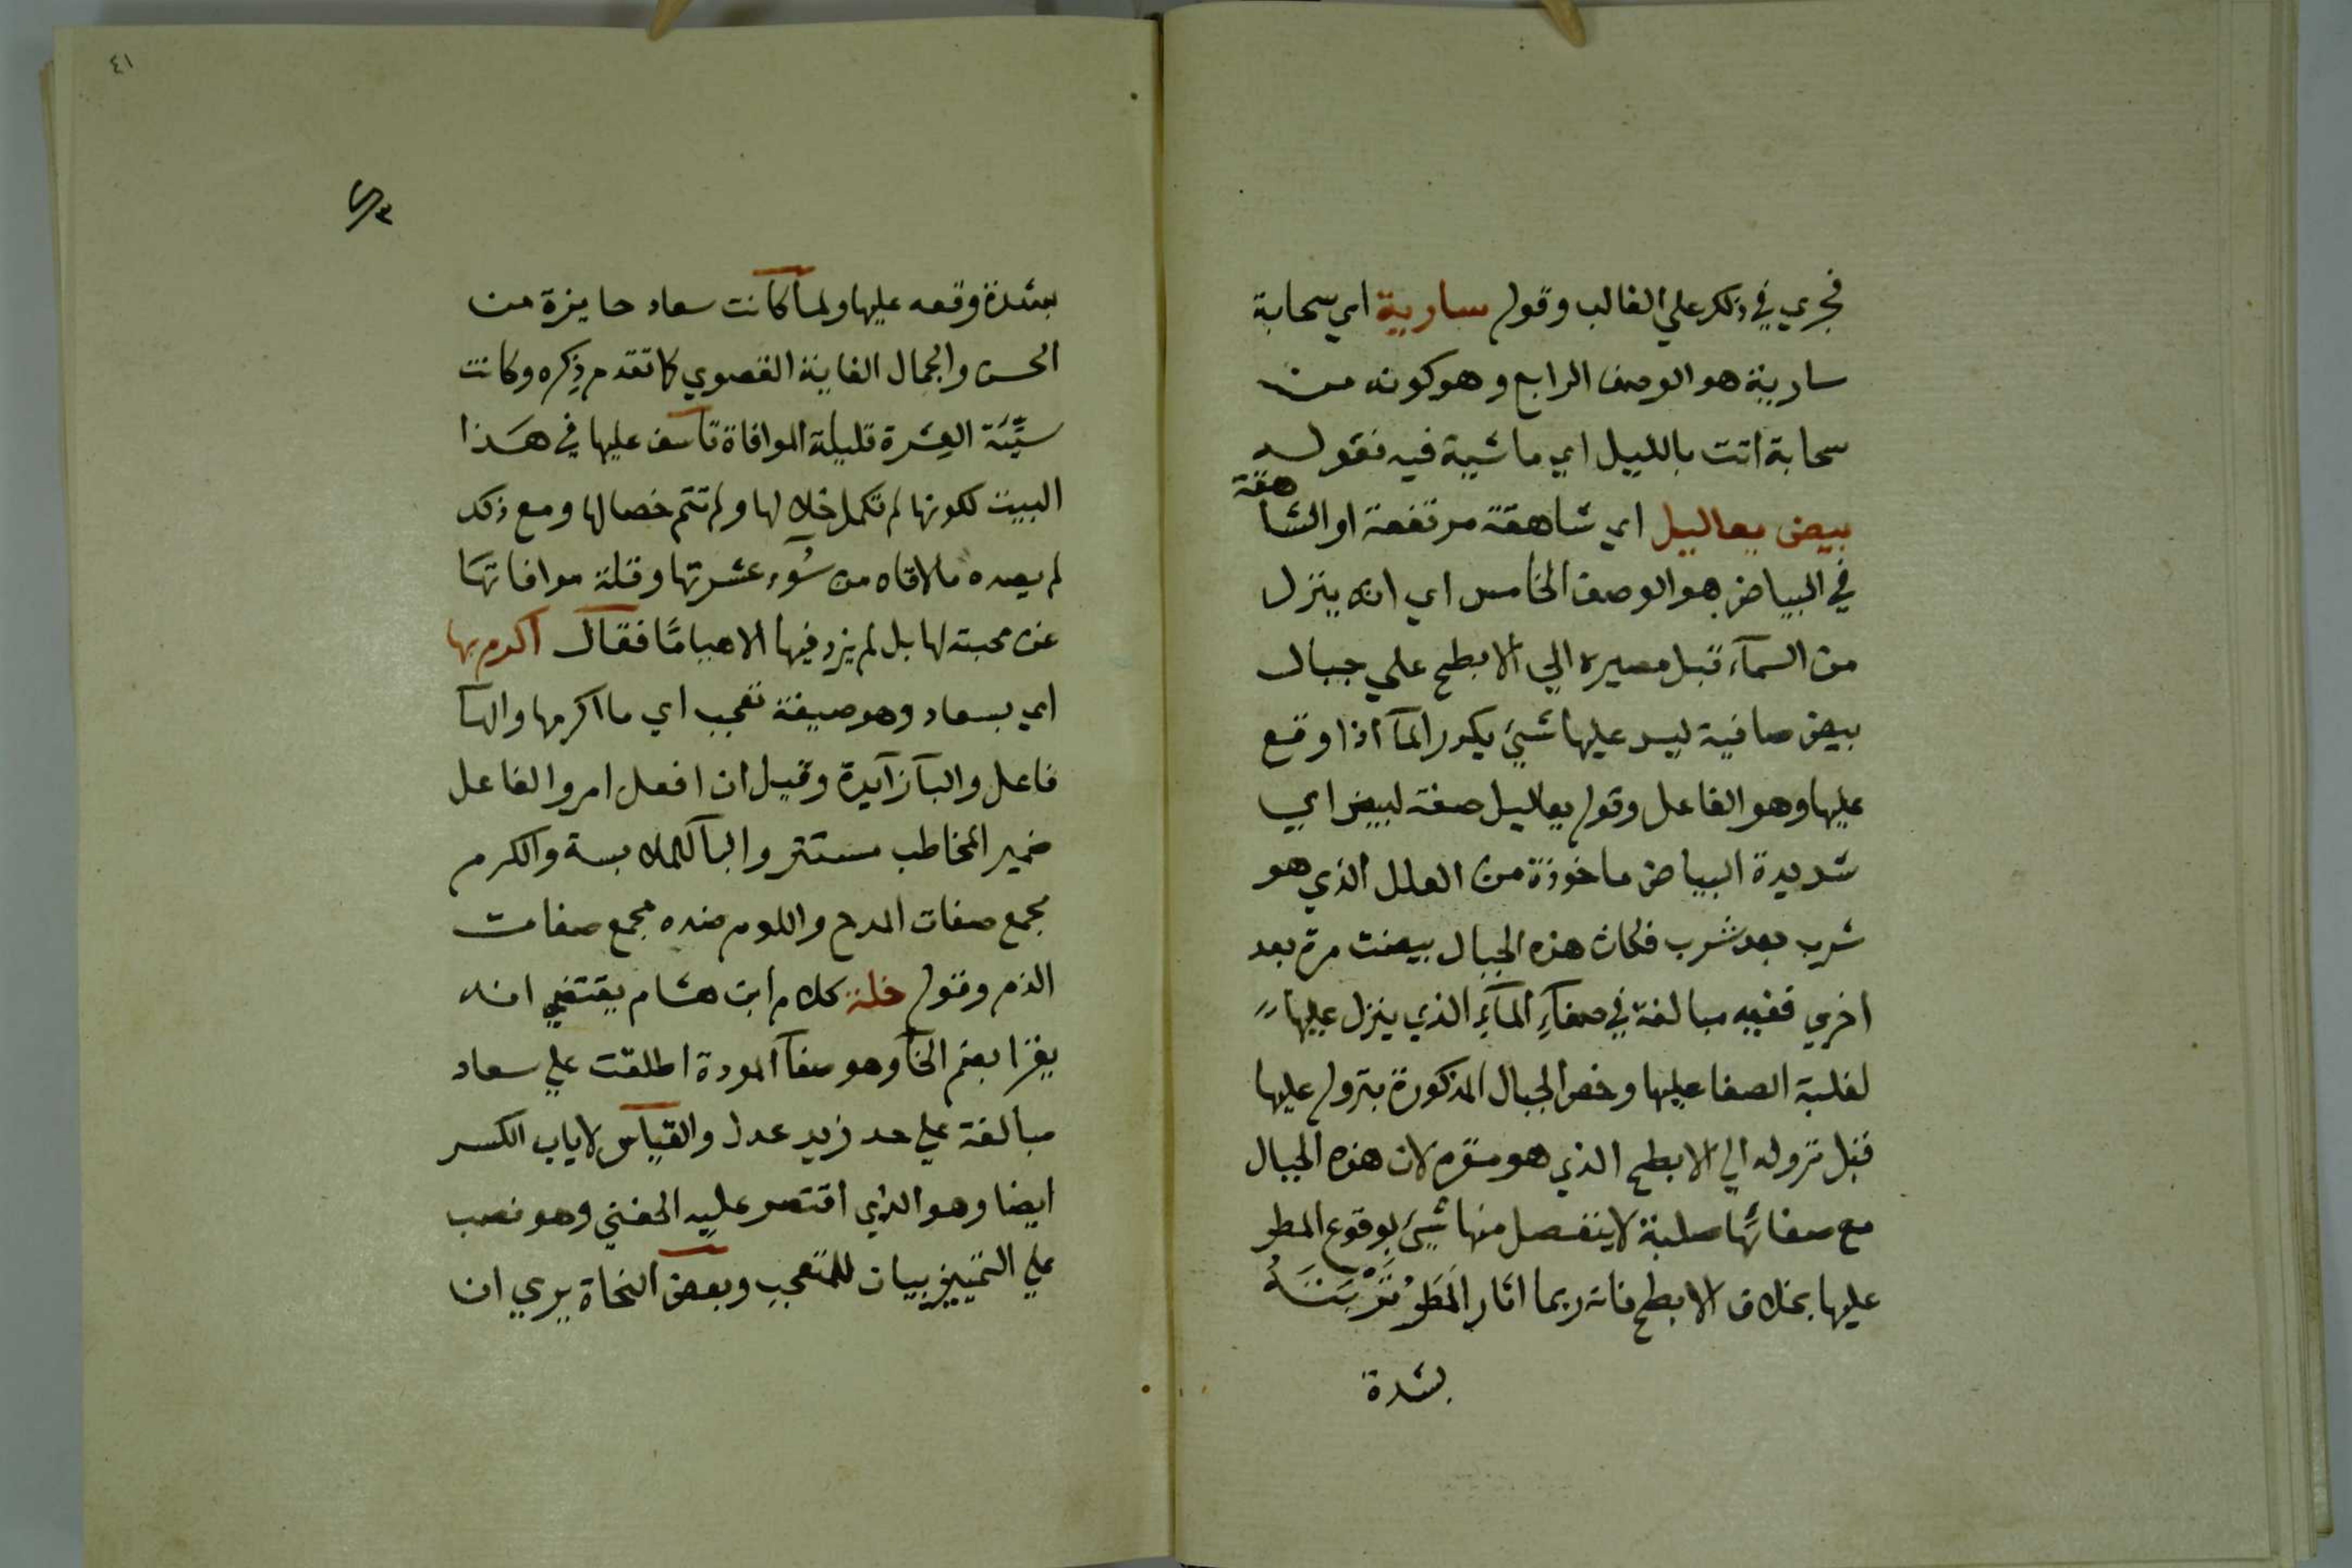 فجري في ذلك علي الغالب وقوله سارية اي سحابة
سارية هو الوصف الرابع وهو كونه من
سحابة اتت بالليل اي ماشية فيه فقوله
بيض يعاليل اي شاهقة مرتفعة او الشاهقة
في البياض هو الوصف الخامس اي انه ينزل
من السمآء قبل مصيره الي الابطح علي جبال
بيض صافية ليس عليها شيئ يكدر المآ اذا وقع
عليها وهو الفاعل وقوله يعاليل صفة لبيض اي
شديدة البياض ماخوذة من العلل الذي هو
شرب بعد شرب فكان هذه الجبال بيضت مرة بعد
اخري ففيه مبالغة في صفآءِ المآءِ الذي ينزل عليها
لغلبة الصفا عليها وخص الجبال المذكورة بنزوله عليها
قبل نزوله الي الابطح الذي هو مقره لان هذه الجبال
مع صفائها صلبة لا ينفصل منها شيئ لوقوع المطر
عليها بخلاف الابطح فانه ربما اثار المَطَرُ تُرْبَتَهُ
بشدة
٤١
بشدة وقعه عليها ولما كانت سعاد حايزة من
الحسن والجمال الغاية القصوي كما تقدم ذِكره وكانت
سيِّئَة العِشرة قليلة الموافاة تأسف عليها في هَذا
البيت لكونها لم تكمل خلالها ولم تتم خصالها ومع ذلك
لم يصده ما لاقاه من سُوٓء عشرتها وقلة موافاتهَا
عن محبته لها بل لم يزد فيها الا هيامًا فقال اكرم بها
اي بسعاد وهو صيغة تعجب اي ما اكرمها والهآ
فاعل والبآ زآيدة وقيل ان افعل امر والفاعل
ضمير المخاطب مستتر والبآ للملابسة والكرم
مجمع صفات المدح واللوم ضده مجمع صفات
الذم وقوله خلة كلام ابن هشام يقتضي انه
يقرا بضم الخآ وهو صفآ المودة اطلقت علي سعاد
مبالغة علي حد زيد عدل والقياس لا ياب الكسر
ايضا وهو الذي اقتصر عليه الحفني وهو نصب
علي التمييز بيان للمتعجب وبعض النحاة يري ان